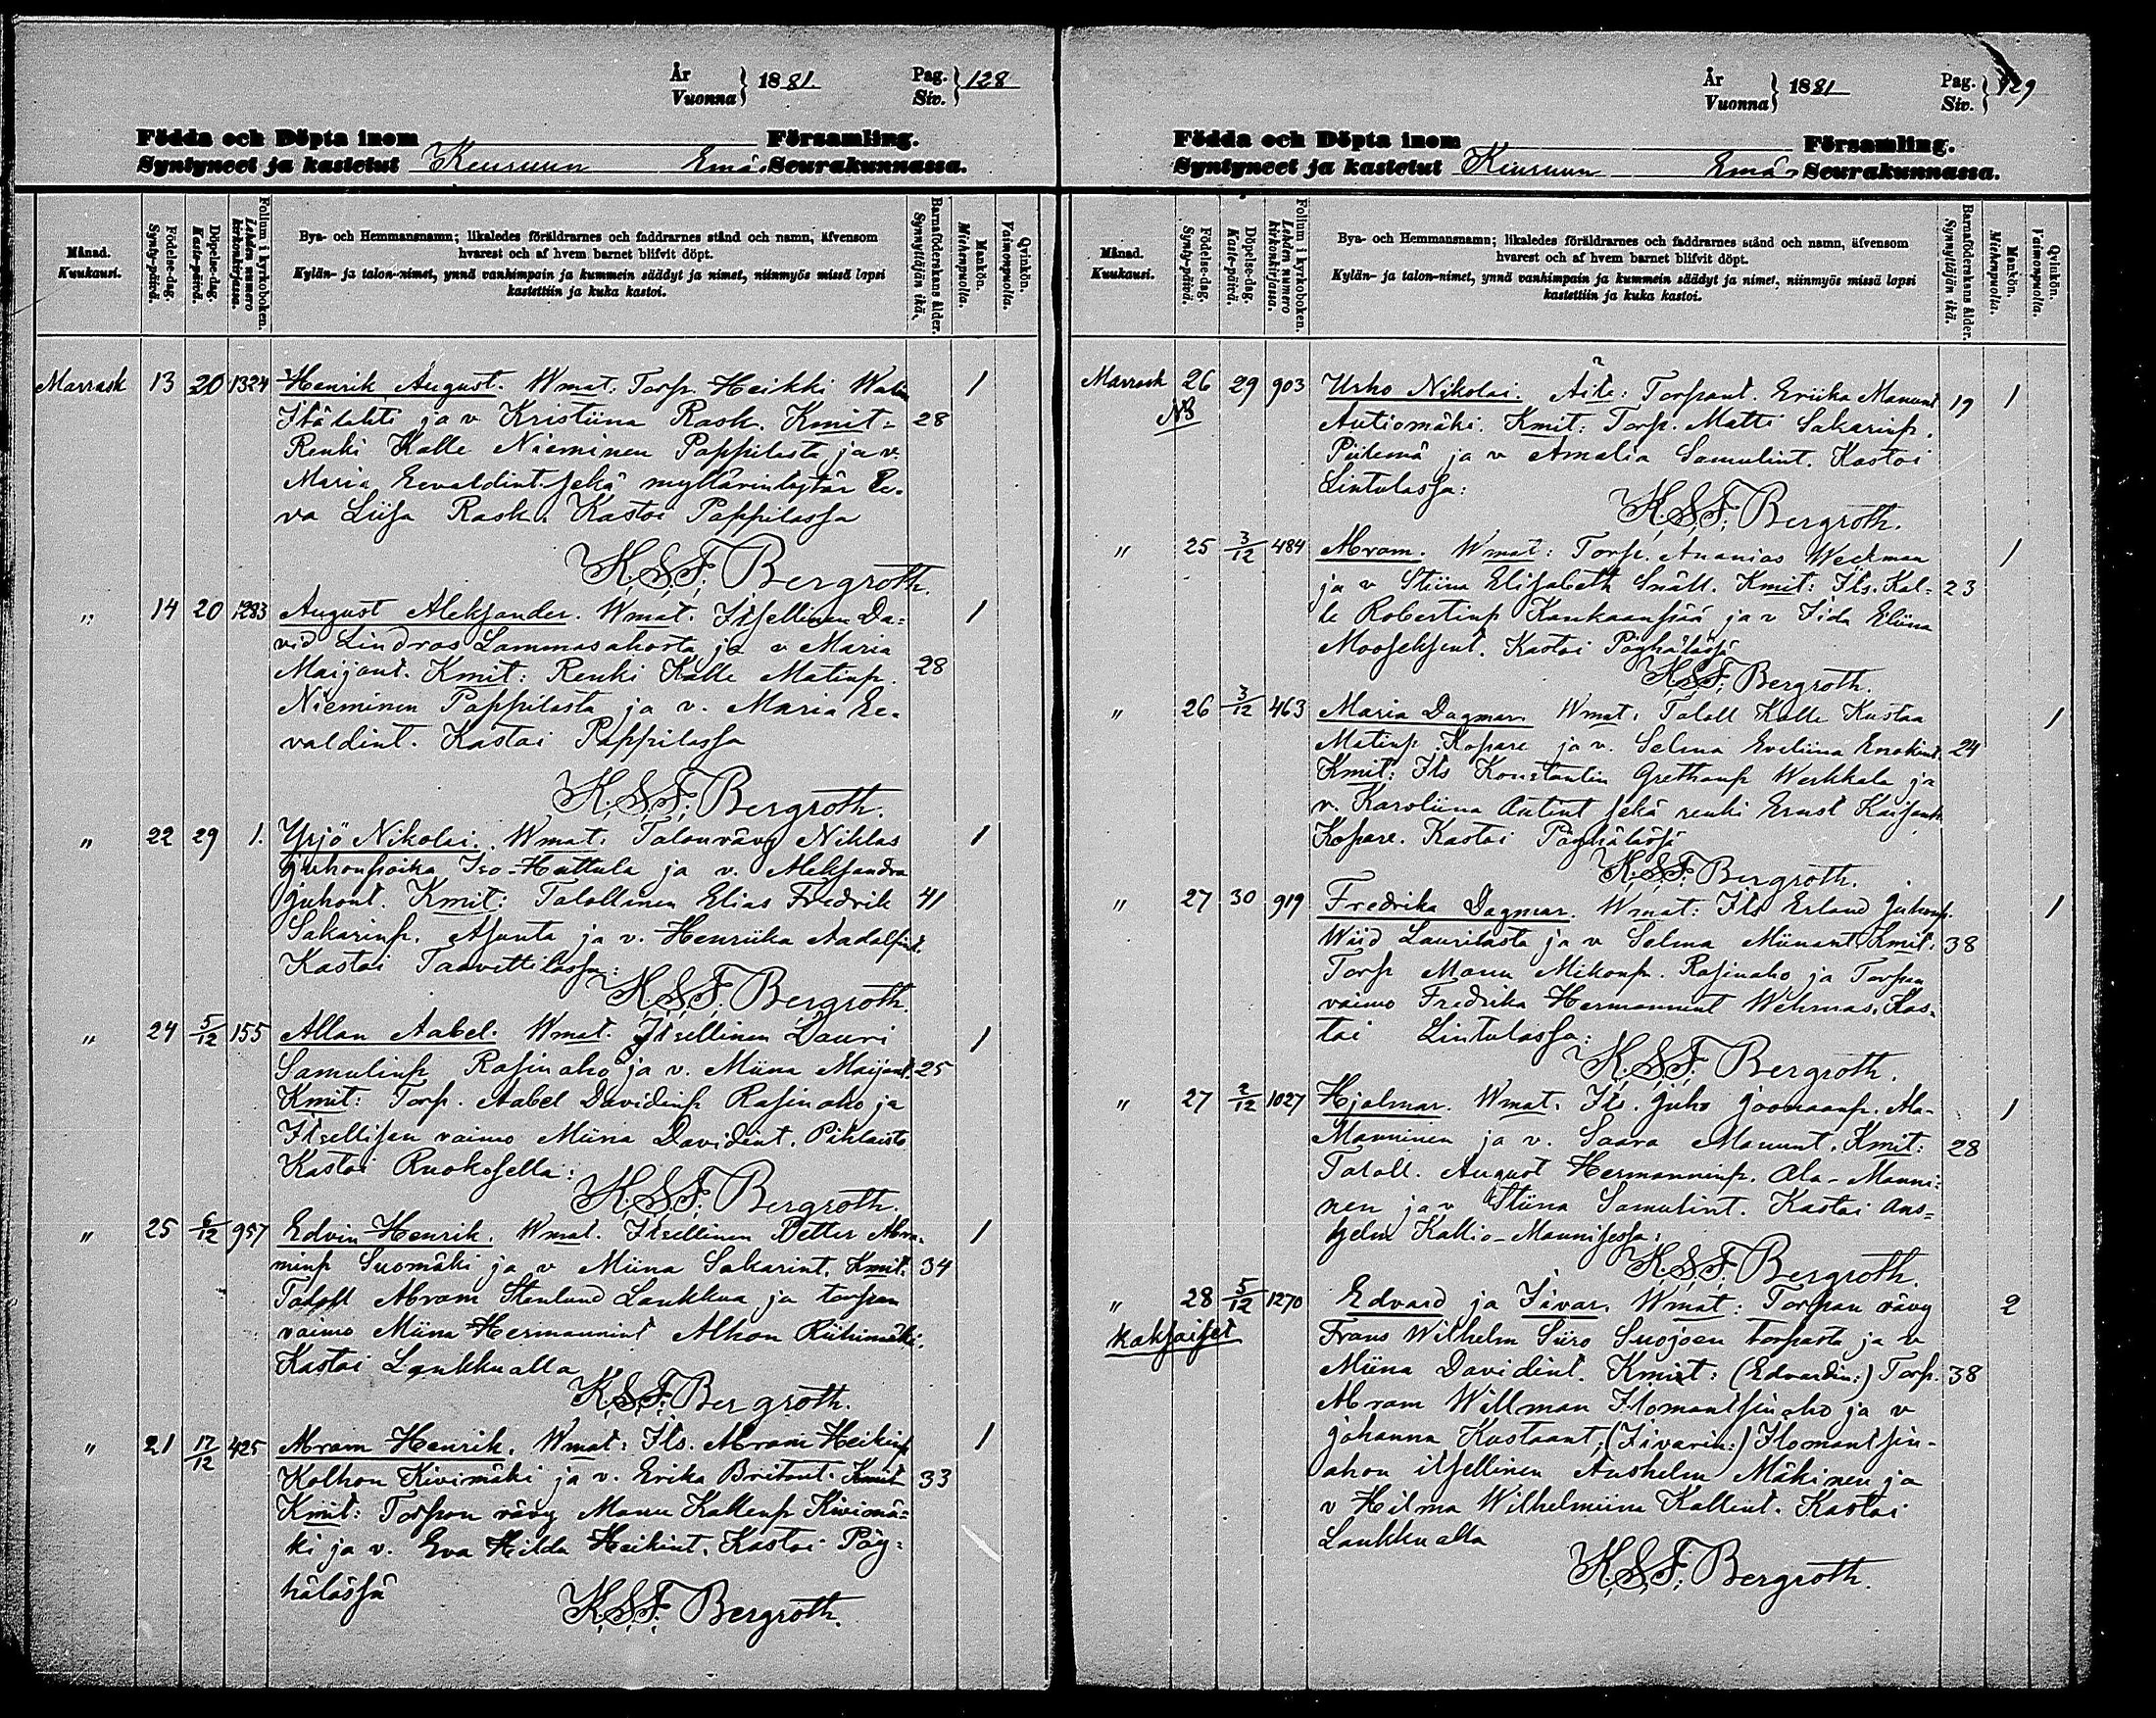 År
Vuonna } 1881.
Pag.
Siv. } 128
Födda och Döpta inom Församling.
Syntyneet ja kastetut Keuruun Emä-Seurakunnassa.
Månad.
Kuukausi.
Födelse-dag.
Synty-päivä.
Döpelse-dag.
Kaste-päivä.
Folium i kyrkoboken.
Lehden numero
kirkonkirjassa.
Bya- och Hemmansnamn; likaledes föräldrarnes och faddrarnes stånd och namn, äfvensom
hvarest och af hvem barnet blifvit döpt.
Kylän- ja talon-nimet, ynnä vanhimpain ja kummein säädyt ja nimet, niinmyös missä lapsi
kastettiin ja kuka kastoi.
Barnaföderskans ålder.
Synnyttäjän ikä.
Mankön.
Miehenpuolia.
Qvinkön.
Vaimonpuolia.
Marrask 13 20 1324 Henrik August. Wmat: Torp. Heikki 1
Itälahti ja v Kristiina Rask. Kmit: 28
Renki Kalle Nieminen Pappilasta ja v.
Maria Eevaldint. sekä myllärintytär Ee-
va Liisa Rask. Kastoi Pappilassa
K.S.F. Bergroth.
" 14 20 1283 August Aleksander. Wmat. Itsellinen Da- 1
vid Lindroos Lammasahosta ja v Maria
Maijant. Kmit: Renki Kalle Matinp. 28
Nieminen Pappilasta ja v. Maria Ee-
valdint. Kastoi Pappilassa
K.S.F. Bergroth.
" 22 29 1. Yrjö Nikolai. Wmat: Talonvävy Niklas 1
Juhonpoika Iso-Huttula ja v. Aleksandra
Juhont. Kmit: Talollinen Elias Fredrik 41
Sakarinp. Asunta ja v. Henriika Aadolfint.
Kastoi Taavettilassa:
K.S.F. Bergroth.
" 24 5/12 155 Allan Aabel. Wmat. Itsellinen Lauri 1
Samulinp Rasinaho ja v. Miina Maijant. 25
Kmit: Torp. Aabel Davidinp Rasinaho ja
Itsellisen vaimo Miina Davidint. Pihlaisto
Kastoi Ruokosella:
K.S.F. Bergroth.
" 25 6/12 957 Edvin Henrik. Wmat. Itsellinen Petter Abra- 1
minp Suomäki ja v Miina Sakarint. Kmit: 34
Taloll Abram Stenlund Laukkua ja torpan
vaimo Miina Hermannint Alhon Riihimäki.
Kastoi Laukkualla
K.S.F. Bergroth.
" 21 17/12 425 Abram Henrik. Wmat: Its. Abram Heikinp 1
Kolhon Kivimäki ja v. Erika Britant. Kmit 33
Kmit: Torpan vävy Manu Kallenp Kivimä-
ki ja v. Eva Hilda Heikint. Kastoi Pöy-
hälässä
K.S.F. Bergroth.
År
Vuonna } 1881
Pag.
Siv. } 129
Födda och Döpta inom Församling.
Syntyneet ja kastetut Keuruun Emä-Seurakunnassa.
Månad.
Kuukausi.
Födelse-dag.
Synty-päivä.
Döpelse-dag.
Kaste-päivä.
Folium i kyrkoboken.
Lehden numero
kirkonkirjassa.
Bya- och Hemmansnamn; likaledes föräldrarnes och faddrarnes stånd och namn, äfvensom
hvarest och af hvem barnet blifvit döpt.
Kylän- ja talon-nimet, ynnä vanhimpain ja kummein säädyt ja nimet, niinmyös missä lapsi
kastettiin ja kuka kastoi.
Barnaföderskans ålder.
Synnyttäjän ikä.
Mankön.
Miehenpuolia.
Qvinkön.
Vaimonpuolia.
Marrask 26 29 903 Urho Nikolai. Äite: Torpant. Eriika Manunt 19 1
Autiomäki. Kmit: Torp. Matti Sakarinp.
ja v Amalia Samulint. Kastoi
Lintulassa:
K.S.F. Bergroth.
" 25 3/12 484 Abram. Wmat: Torp. Ananias Weckman 1
ja v Stiina Elisabeth Snäll. Kmit: Its. Kal- 23
le Robertinp Kankaanpää ja v Iida Eliina
Mooseksent. Kastoi Pöyhälässä
K.S.F. Bergroth.
" 26 3/12 463 Maria Dagmar. Wmat: Taloll Kalle Kustaa 1
Matinp. Kopare ja v. Selma Eveliina Enokint. 24
Kmit: Its Konstantin Grethanp Werkkala ja
v. Karoliina Antint sekä renki Ernst Kaisanp.
Kopare. Kastoi Pöyhälässä
K.S.F. Bergroth.
" 27 30 919 Fredrika Dagmar. Wmat: Its Erland Juhonp. 1
Wiid Laurilasta ja v Selma Miinant. Kmit: 38
Torp Manu Mikonp. Rasinaho ja Torpan
vaimo Fredrika Hermannint Wehmas. Kas-
toi Lintulassa:
K.S.F. Bergroth.
" 27 2/12 1027 Hjalmar. Wmat. Its. Juho Joonaanp. Ala- 1
Manninen ja v. Saara Manunt. Kmit: 28
Taloll. August Hermanninp. Ala-Manni-
nen ja v Stiina Samulint. Kastoi Ans-
helm Kallio-Mannisessa:
K.S.F. Bergroth.
" 28 5/12 1270 Edvard ja Iivar. Wmat: Torpan vävy 2
kaksoiset Frans Wilhelm Siiro Suojoen torpasta ja v
Miina Davidint. Kmit: (Edvardin:) Torp. 38
Abram Willman Ilomantsinaho ja v
Johanna Kustaant; (Iivarin:) Ilomantsin-
ahon itsellinen Anshelm Mäkinen ja
v Hilma Wilhelmiina Kallent. Kastoi
Laukkualla
K.S.F. Bergroth.